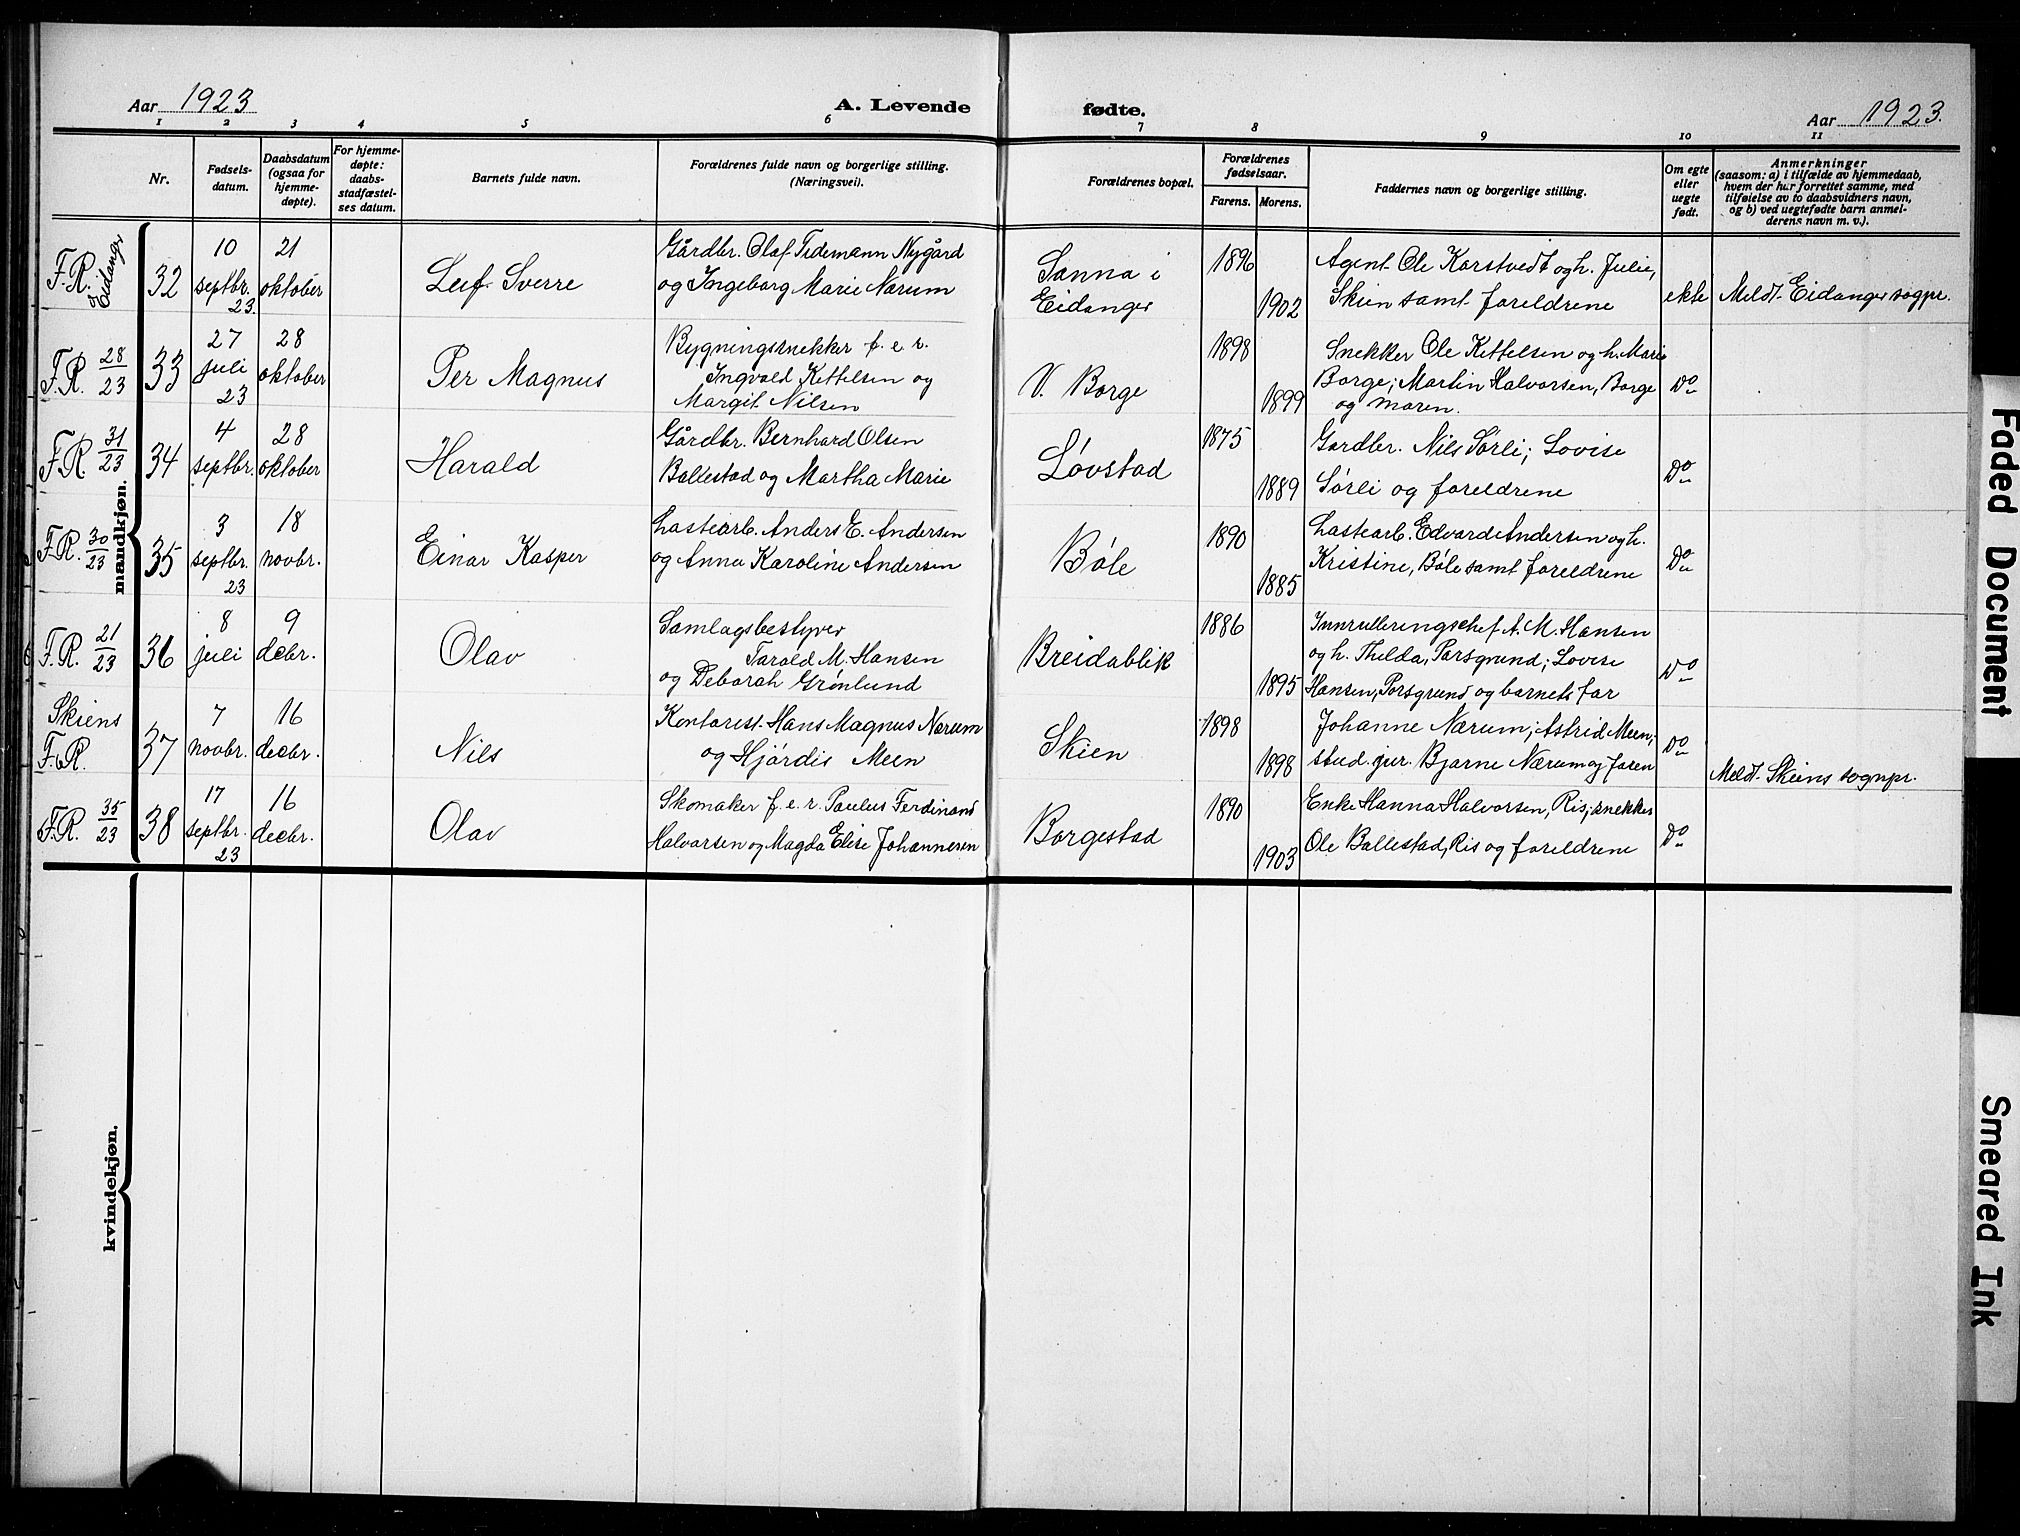 Aar 1923
A. Levende
fødte.
Aar 1923.
1 2 3 4 5 6 7 8 9 10 11
Nr.
Fødsels-
datum.
Daabsdatum
(ogsaa for
hjemme-
døpte).
For hjemme-
døpte:
daabs-
stadfæstel-
ses datum.
Barnets fulde navn.
Forældrenes fulde navn og borgerlige stilling.
(Næringsvei).
Forældrenes bopæl.
Forældrenes
fødselsaar.
Farens. Morens.
Faddernes navn og borgerlige stilling.
Om egte
eller
uegte
født.
Anmerkninger
(saasom: a) i tilfælde av hjemmedaab,
hvem der har forrettet samme, med
tilføielse av to daabsvidners navn,
og b) ved uegtefødte barn anmel-
derens navn m. v.).
mandkjøn.
F.R. Eidanger
32
10
septbr.
23.
21
oktober
Leif Sverre
Gårdbr. Olaf Tidemann Nygård
og Ingeborg Marie Nærum
Sanna i
Eidanger
1896
1902
Agent Ole Karstvedt og h. Julie,
Skien samt foreldrene
ekte
Meldt Eidanger sogpr.
F.R. 28/23
33
27
juli
23
28
oktober
Per Magnus
Bygningssnekker f. e. r.
Ingvald Kettelsen og
Margit Nilsen
V. Borge
1898
1899
Snekker Ole Kettelsen og h. Marie
Borge; Martin Halvorsen, Borge
og moren.
Do
F.R. 31/23
34
4
septbr.
28
oktober
Harald
Gårdbr. Bernhard Olsen
Ballestad og Martha Marie
Løvstad
1875
1889
Gardbr. Nils Sørli; Lovise
Sørli og foreldrene
Do
F.R. 30/23
35
3
septbr.
23
18
novbr.
Einar Kasper
Lastearb. Anders E. Andersen
og Anna Karoline Andersen
Bøle
1890
1885
Lastearb. Edvard Andersen og h.
Kristine, Bøle samt foreldrene
Do
F.R. 21/23
36
8
juli
9
decbr.
Olav
Samlagsbestyrer
Tarald M. Hansen
og Deborah Grønlund
Breidablik
1886
1895
Innrulleringschef A. M. Hansen
og h. Thilda, Porsgrund; Lovise
Hansen, Porsgrund og barnets far
Do
Skiens
F.R.
37
7
novbr.
16
decbr.
Nils
Kontorist Hans Magnus Nærum
og Hjørdis Meen
Skien
1898
1898
Johanne Nærum; Astrid Meen;
stud. jur. Bjarne Nærum og faren
Do
Meldt Skiens sognpr.
F.R. 35/23
38
17
septbr.
23
16
decbr.
Olav
Skomaker f. e. r. Paulus Ferdinand
Halvorsen og Magda Elise Johannesen
Borgestad
1890
1903
Enke Hanna Halvorsen, Ris; snekker
Ole Ballestad, Ris og foreldrene
Do
kvindekjøn.
Faded Document
Smeared Ink